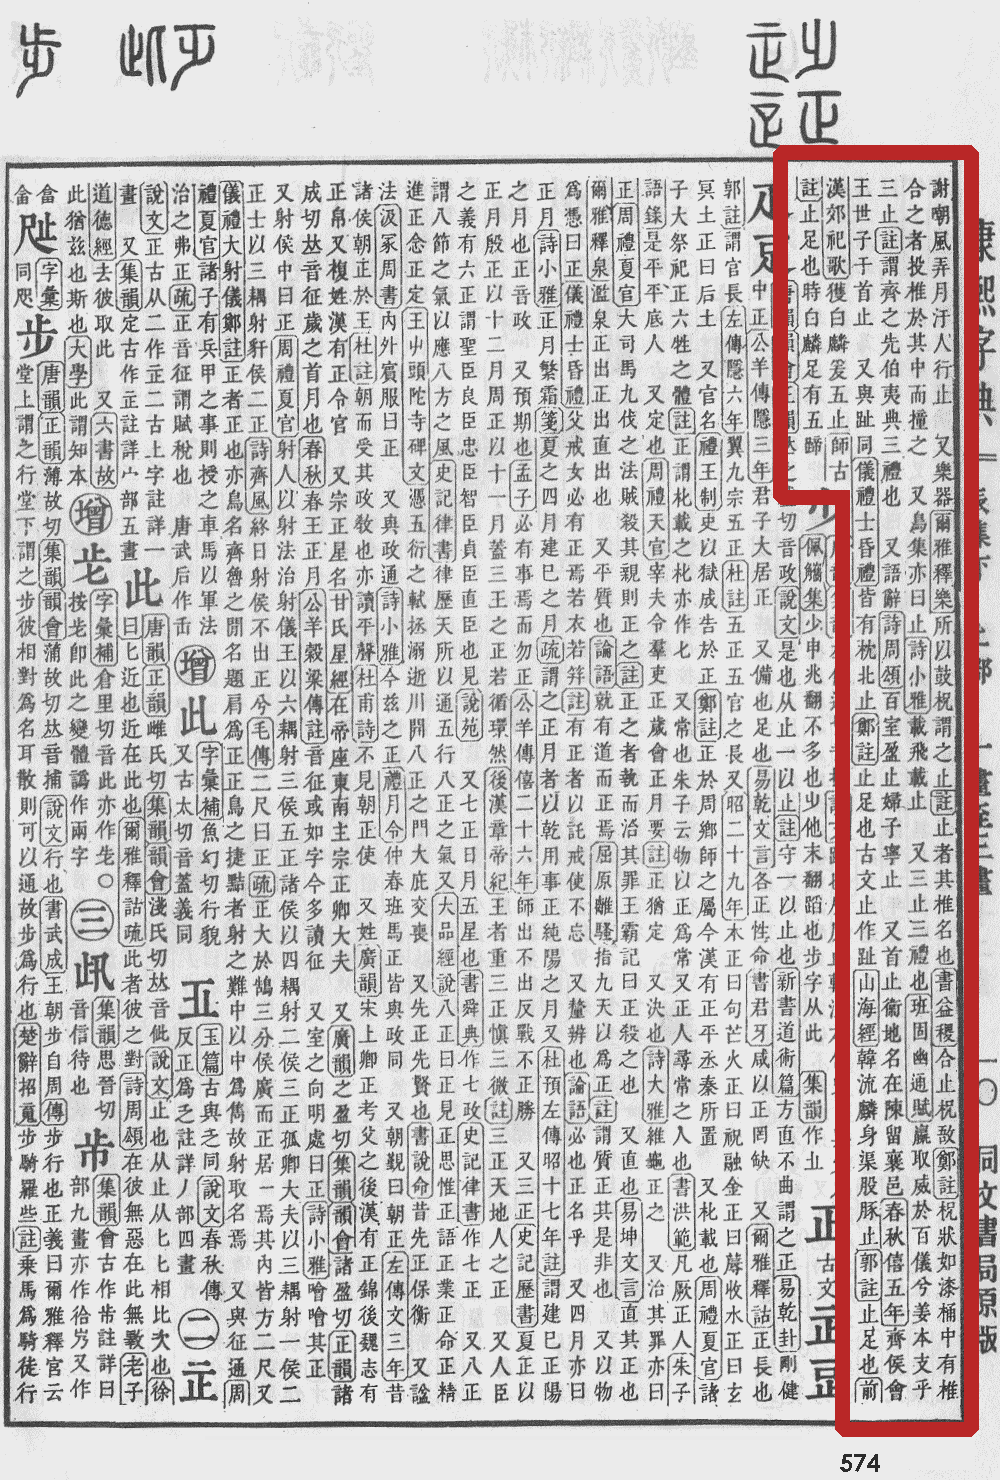 謝嘲風弄月汙人行止 又樂器爾雅釋樂所以鼓柷謂之止註止者其椎名也書益稷合止柷敔鄭註柷狀如漆桶中有椎
合之者投椎於其中而撞之 又鳥集亦曰止詩小雅載飛載止 又三止三禮也班固幽通賦嬴取威於百儀兮姜本支乎
三止註謂齊之先伯夷典三禮也 又語辭詩周頌百室盈止婦子寧止 又首止衞地名在陳留襄邑春秋僖五年齊侯會
王世子于首止 又與趾同儀禮士昏禮皆有枕北止鄭註止足也古文止作趾山海經韓流麟身渠股豚止郭註止足也前
漢郊祀歌獲白麟爰五止師古
註止足也時白麟足有五蹄
佩觿集少申兆翻不多也少他末翻蹈也步字从此 集韻作
正 古文
切音政說文是也从止一以止註守一以止也新書道術篇方直不曲謂之正易乾卦剛健
中正公羊傳隱三年君子大居正 又備也足也易乾文言各正性命書君牙咸以正罔缺 又爾雅釋詁正長也
郭註謂官長左傳隱六年翼九宗五正杜註五正五官之長又昭二十九年木正曰句芒火正曰祝融金正曰蓐收水正曰玄
冥土正曰后土 又官名禮王制史以獄成告於正鄭註正於周鄉師之屬今漢有正平丞秦所置 又朼載也周禮夏官諸
子大祭祀正六牲之體註正謂朼載之朼亦作七 又常也朱子云物以正為常又正人尋常之人也書洪範凡厥正人朱子
語錄是平平底人 又定也周禮天官宰夫令羣吏正歲會正月要註正猶定 又決也詩大雅維龜正之 又治其罪亦曰
正周禮夏官大司馬九伐之法賊殺其親則正之註正之者執而治其罪王霸記曰正殺之也 又直也易坤文言直其正也
爾雅釋泉濫泉正出正出直出也 又平質也論語就有道而正焉屈原離騷指九天以為正註謂質正其是非也 又以物
為憑曰正儀禮士昏禮父戒女必有正焉若衣若笄註有正者以託戒使不忘 又釐辨也論語必也正名乎 又四月亦曰
正月詩小雅正月繁霜箋夏之四月建巳之月疏謂之正月者以乾用事正純陽之月又杜預左傳昭十七年註謂建巳正陽
之月也正音政 又預期也孟子必有事焉而勿正公羊傳僖二十六年師出不正反戰不正勝 又三正史記歷書夏正以
正月殷正以十二月周正以十一月蓋三王之正若循環然後漢章帝紀王者重三正愼三微註三正天地人之正 又人臣
之義有六正謂聖臣良臣忠臣智臣貞臣直臣也見說苑 又七正日月五星也書舜典作七政史記律書作七正 又八正
謂八節之氣以應八方之風史記律書律歷天所以通五行八正之氣又大品經說八正曰正見正思惟正語正業正命正精
進正念正定王屮頭陀寺碑文憑五衍之軾拯溺逝川開八正之門大庇交喪 又先正先賢也書說命昔先正保衡 又諡
法汲冢周書內外賓服曰正 又與政通詩小雅今茲之正禮月令仲春班馬正皆與政同 又朝覲曰朝正左傳文三年昔
諸侯朝正於王杜註朝而受其政敎也亦讀平聲杜甫詩不見朝正使 又姓廣韻宋上卿正考父之後漢有正錦後魏志有
正帛又複姓漢有正令官 又宗正星名甘氏星經在帝座東南主宗正卿大夫 又廣韻之盈切集韻韻會諸盈切正韻諸
成切𠀤音征歲之首月也春秋春王正月公羊穀梁傳註音征或如字今多讀征 又室之向明處曰正詩小雅噲噲其正
又射侯中曰正周禮夏官射人以射法治射儀王以六耦射三侯五正諸侯以四耦射二侯三正孤卿大夫以三耦射一侯二
正士以三耦射豻侯二正詩齊風終日射侯不出正兮毛傳二尺曰正疏正大於鵠三分侯廣而正居一焉其內皆方二尺又
儀禮大射儀鄭註正者正也亦鳥名齊魯之閒名題肩為正正鳥之捷黠者射之難中以中為雋故射取名焉 又與征通周
禮夏官諸子有兵甲之事則授之車馬以軍法
治之弗正疏正音征謂賦稅也 唐武后作
增 此 字彙補魚幻切行貌
又古太切音蓋義同
玉篇古與之同說文春秋傳
反正為乏註詳丿部四畫
二
說文正古从二作二古上字註詳一
畫 又集韻定古作註詳宀部五畫
此 唐韻正韻雌氏切集韻韻會淺氏切𠀤音佌說文止也从止从匕匕相比次也徐
曰匕近也近在此也爾雅釋詁疏此者彼之對詩周頌在彼無惡在此無斁老子
道德經去彼取此 又六書故
此猶茲也斯也大學此謂知本
增 字彙補倉里切音此亦作
按卽此之變體譌作兩字
三
集韻思晉切
音信待也
集韻會古作註詳曰
部九畫亦作 又作
字彙
同咫
步 唐韻正韻薄故切集韻韻會蒲故切𠀤音捕說文行也書武成王朝步自周傳步行也正義曰爾雅釋宮云
堂上謂之行堂下謂之步彼相對為名耳散則可以通故步為行也楚辭招䰟步騎羅些註乘馬為騎徒行
同文書局原版
574